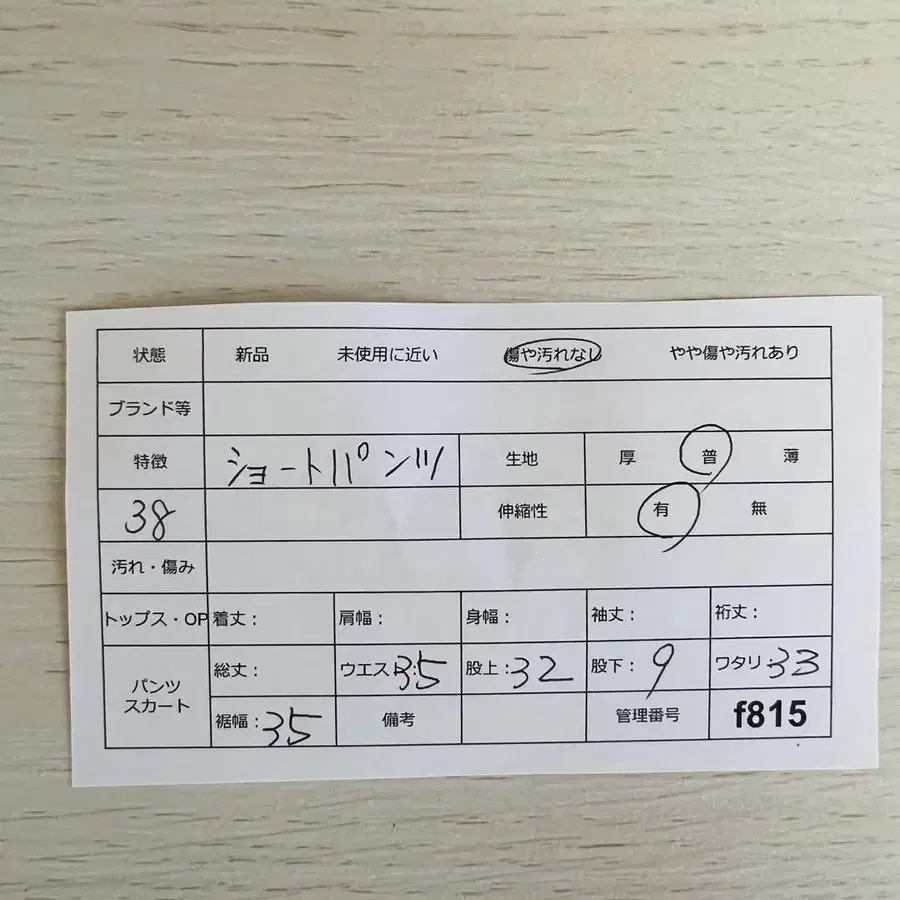 状態 新品 未使用に近い 傷や汚れなし やや傷や汚れあり
ブランド等
特徴 ショートパンツ 生地 厚 普 薄
38 伸縮性 有 無
汚れ・傷み
トップス・OP 着丈: 肩幅: 身幅: 袖丈: 裄丈:
パンツ スカート 総丈: ウエスト:35 股上:32 股下:9 ワタリ:33
裾幅:35 備考 管理番号 f815